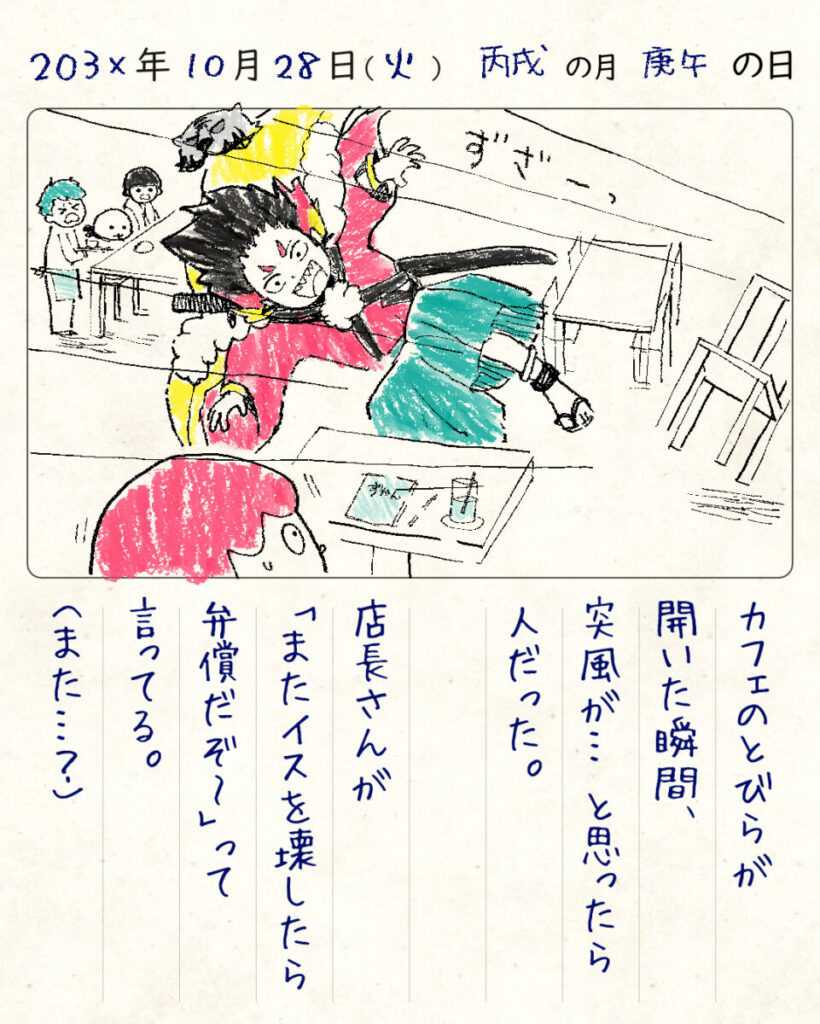 203x年10月28日(火) 丙戌の月 庚午の日
ずざーっ
ずかん
カフェのとびらが
開いた瞬間、
突風が…と思ったら
人だった。
店長さんが
「またイスを壊したら
弁償だぞ〜」って
言ってる。
(また…?)